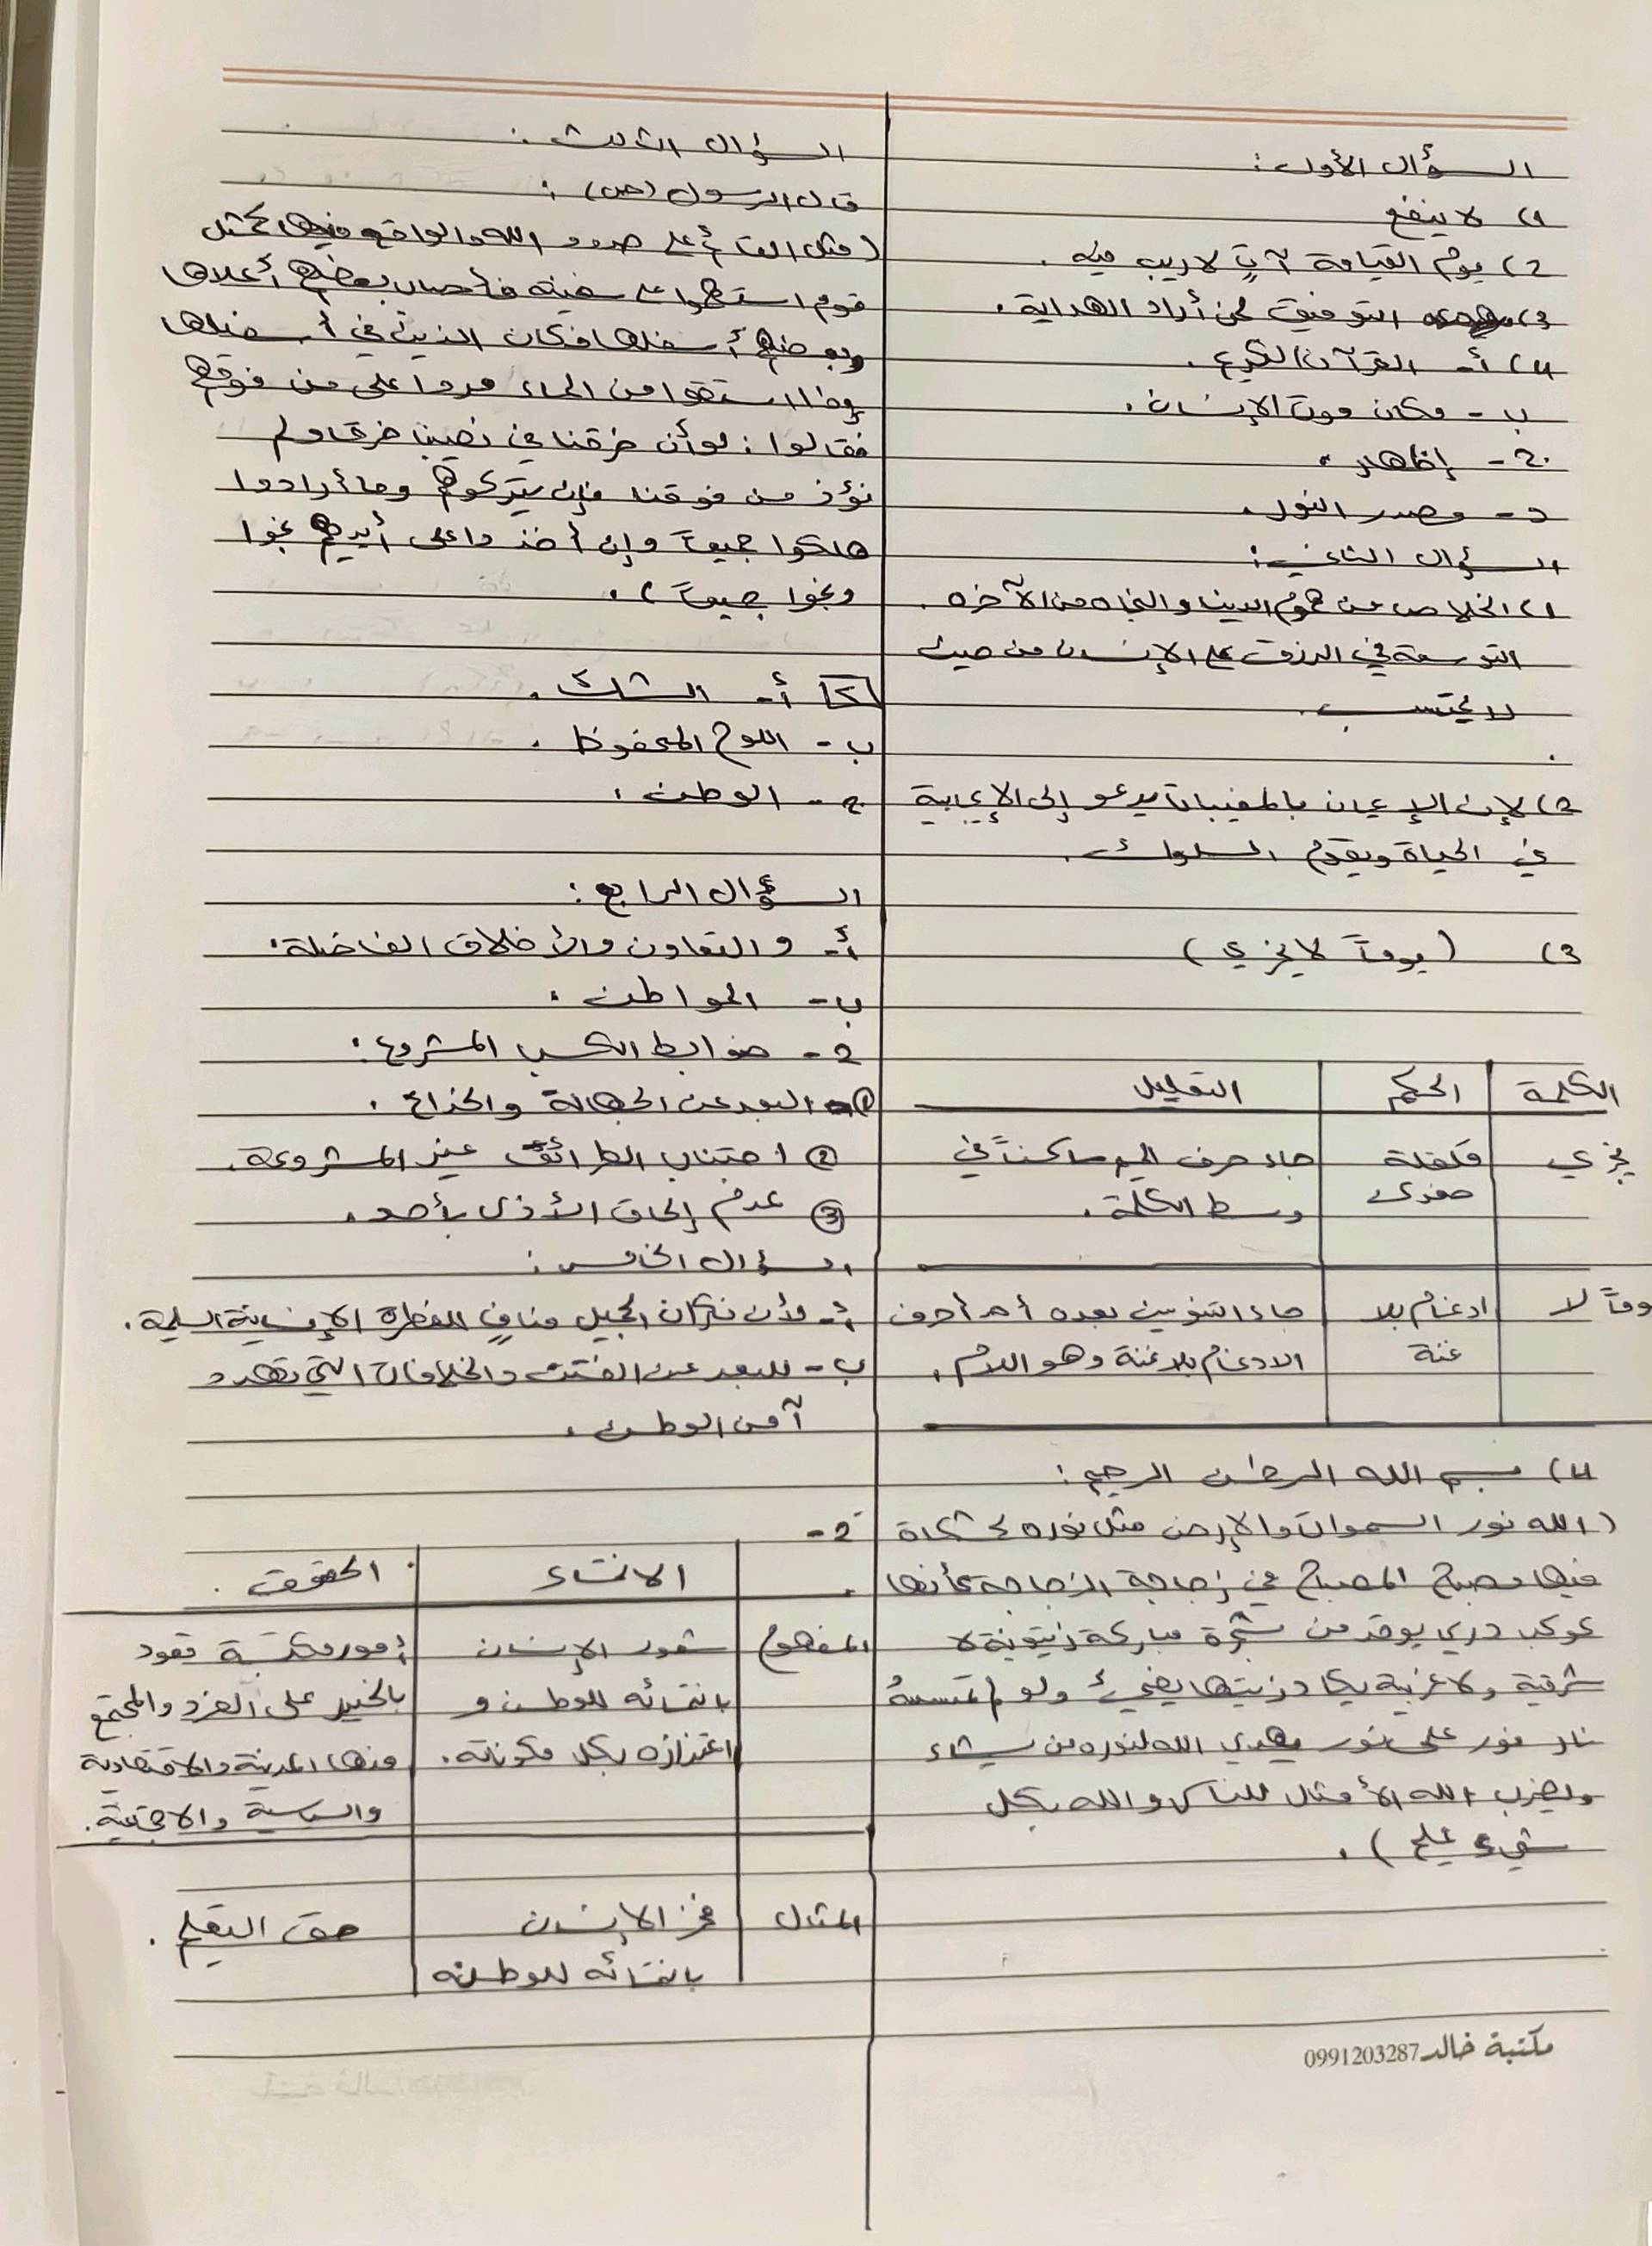 السؤال الأول:
1) لا ينفع
2) يوم القيامة آتٍ لا ريب فيه.
3) التوفيق لمن أراد الهداية.
4) أ- القرآن الكريم.
ب- مكان موت الإنسان.
2- إظهار.
د- مصدر النور.
السؤال الثاني:
1) الخلاص من هموم الدنيا والنجاه من الآخره.
التوسعة في الرزق على الإنسان من حيث
لا يحتسب.
2) لإن الإيمان بالمغيبات يدعو إلى الإيجابية
في الحياة ويقوم السلوك.
3) (يوماً لا يجزي)
الكلمة | الحكم | التعليل
يجزي | قلقلة | جاء حرف الجيم ساكناً في
صغرى | وسط الكلمة.
وماً لا | ادغام بلا | جاء التنوين بعده أحد أحرف
غنة | الادغام بلا غنة وهو اللام.
4) بسم الله الرحمن الرحيم:
(الله نور السموات والإرض مثل نوره كمشكاة
فيها مصباح المصباح في زجاجة الزجاجة كأنها
كوكب دري يوقد من شجرة مباركة زيتونة لا
شرقية ولا غربية يكاد زيتها يضيئ ولو لم تمسسهُ
نار نور على نور يهدي الله لنوره من يشاء
ويضرب الله الأمثال للناس والله بكل
شيء عليم).
مكتبة خالد 0991203287
السؤال الثالث:
قال الرسول (ص):
(مثل القائم على حدود الله والواقع فيها كمثل
قوم استهموا على سفينه فأصاب بعضهم أعلاها
وبعضهم أسفلها فكان الذين في أسفلها
إذا استقوا من الماء مروا على من فوقهم
فقالوا: لو أن خرقنا في نصيبنا خرقا ولم
نؤذ من فوقنا فإن يتركوهم وما أرادوا
هلكوا جميعاً وإن أخذوا على أيديهم نجوا
ونجوا جميعاً).
2 أ- الشك.
ب- اللوح المحفوظ.
ج- الوطن.
السؤال الرابع:
أ- والتعاون والأخلاق الفاضلة.
ب- المواطن.
2- ضوابط الكسب المشروع:
1 البعد عن الجهالة والخداع.
2 اجتناب الطرائق غير المشروعة.
3 عدم إلحاق الأذى بأحد.
السؤال الخامس:
أ- لأن نكران الجميل منافٍ للفطرة الإنسانية السليمة.
ب- للبعد عن الفتن والخلافات التي تهدد
آمن الوطن.
2-
الانتماء | الحقوق.
المفهوم | شعور الإنسان | أمور مكتسبة تعود
بانتمائه للوطن و | بالخير على الفرد والمجتمع
اعتزازه بكل مكوناته. | منها المدنية والاقتصادية
والسياسية والاجتماعية.
المثال | فخر الإنسان | حق التعلم.
بانتمائه للوطن